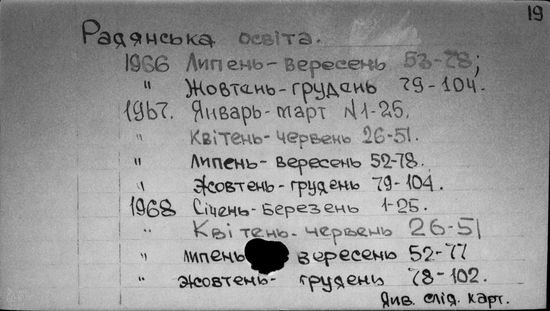 19
Радянська освіта.
1966 Липень-вересень 53-78;
" Жовтень-грудань 79-104.
1967. Январь-март N1-25.
" Квітень-червень 26-51.
" Липень-вересень 52-78.
" Жовтень-грудень 79-104.
1968 Січень-Березень 1-25.
" Квітень-червень 26-51
" липень вересень 52-77
" жовтень-грудень 78-102.
Див. слід. карт.